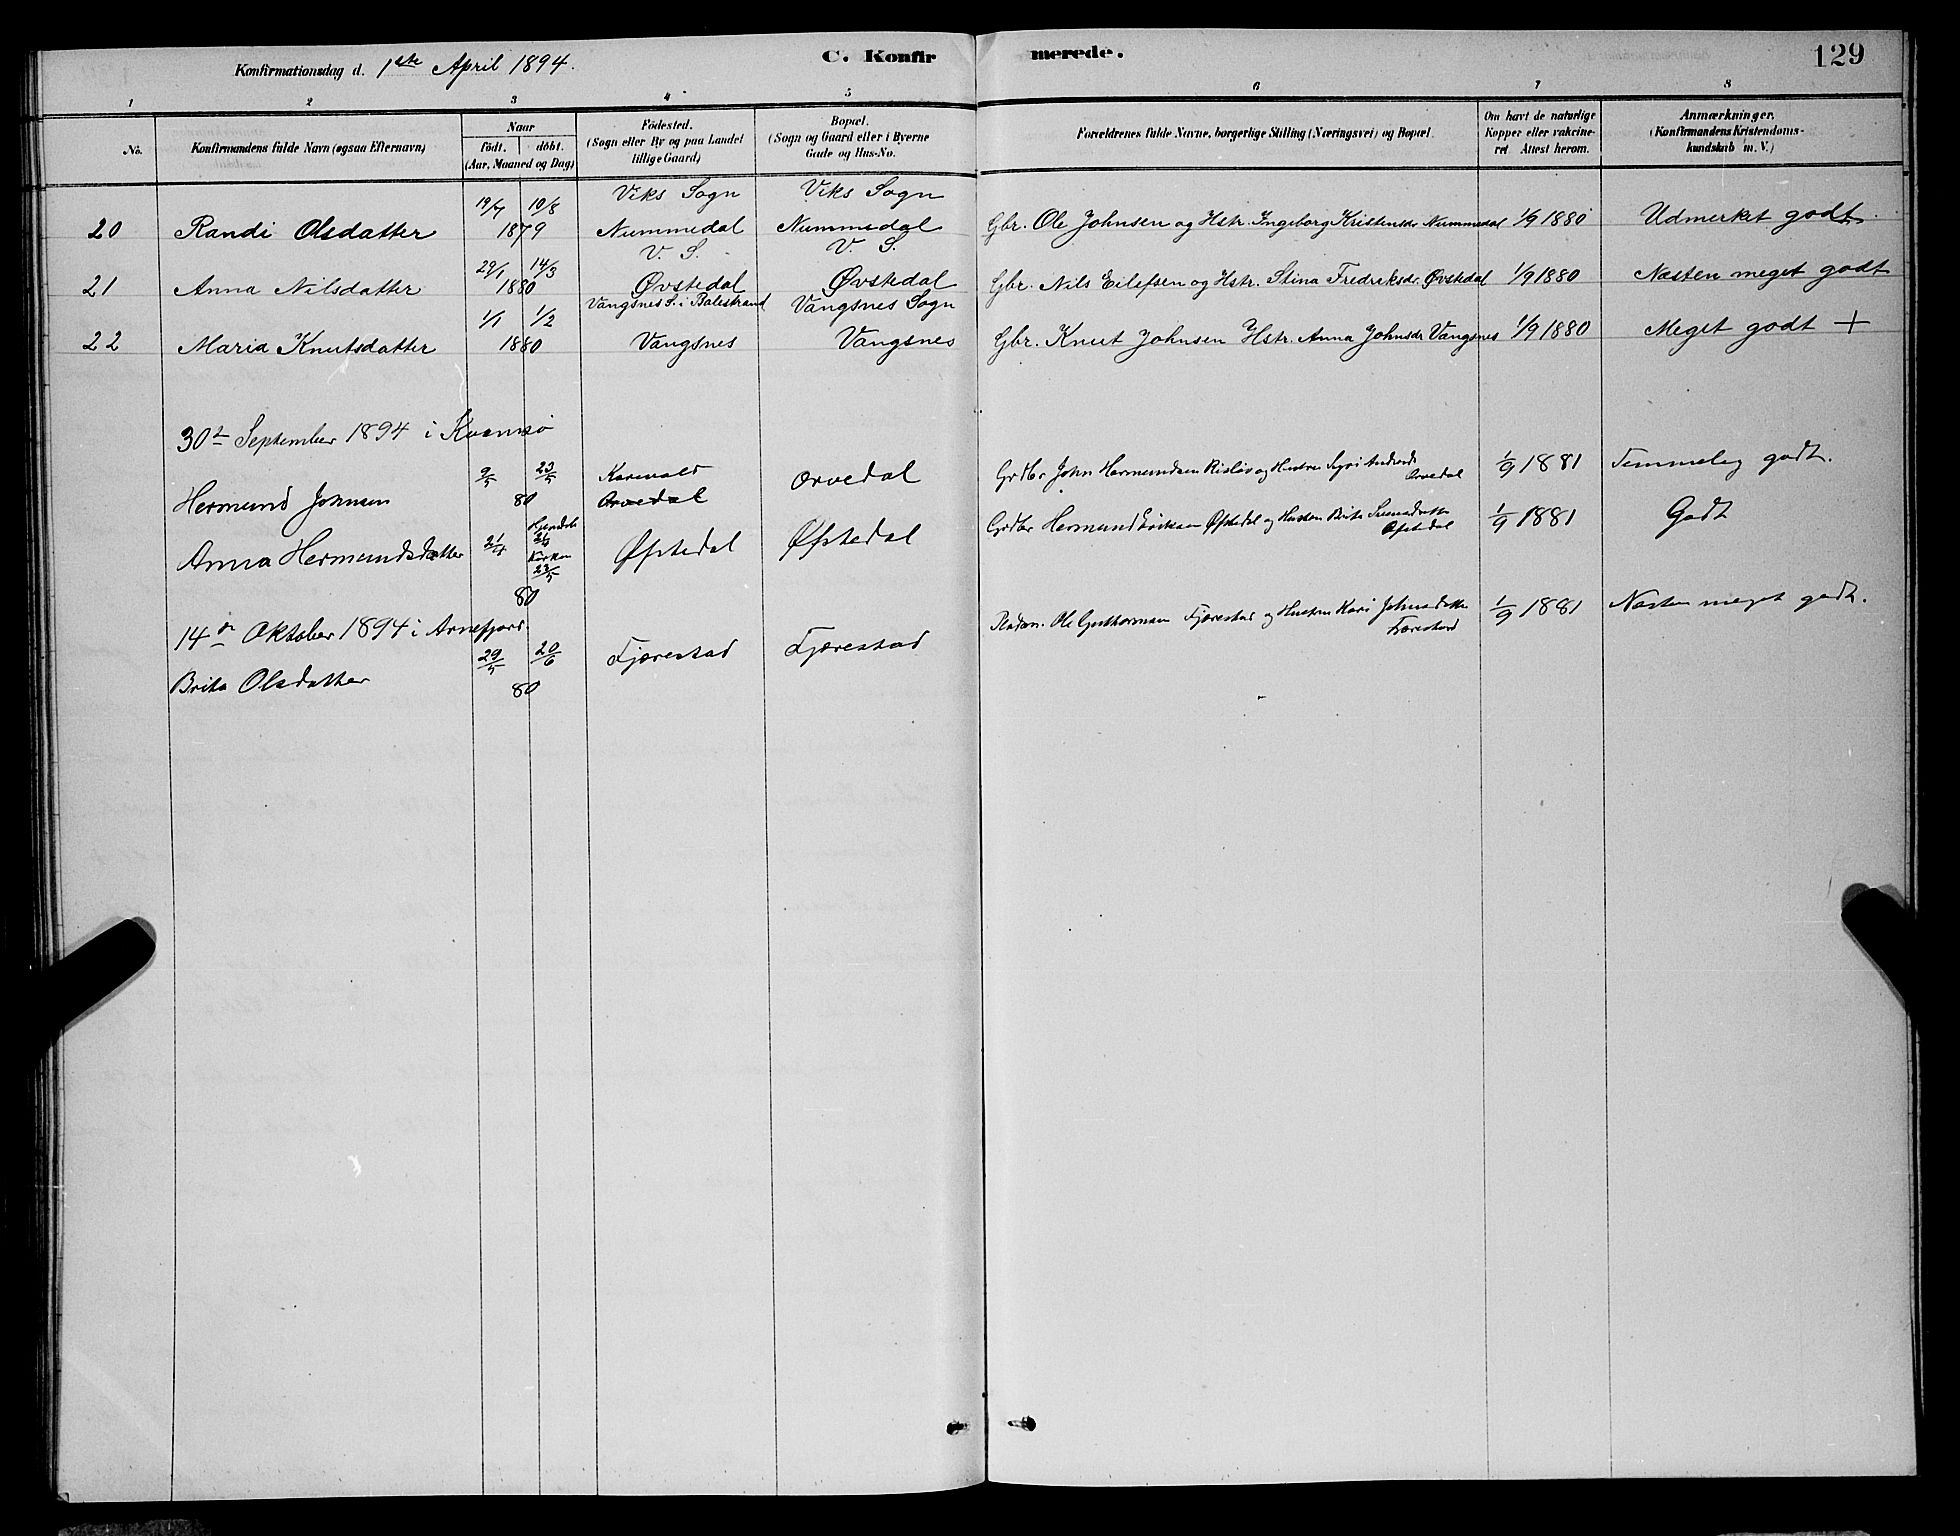 Konfirmationsdag d. 1ste April 1894.
C. Konfirmerede.
129
1 2 3 4 5 6 7 8
No.
Konfirmandens fulde Navn (ogsaa Efternavn)
Naar
födt. döbt.
(Aar, Maaned og Dag)
Födested.
(Sogn eller By og paa Landet
tillige Gaard)
Bopæl.
(Sogn og Gaard eller i Byerne
Gade og Hus-No.
Forældrenes fulde Navne, borgerlige Stilling (Næringsvei) og Bopæl.
Om havt de naturlige
Kopper eller vakcine-
ret Attest herom.
Anmærkninger.
(Konfirmandens Kristendoms-
kundskab m. V.)
19/7 10/8 Viks Sogn Viks Sogn
20 Randi Olsdatter 1879 Nummedal Nummedal Gbr. Ole Johnsen og Hstr. Ingeborg Kristensdr. Nummedal 1/9 1880 Udmerket godt.
29/1 14/3 V. S. V. S.
21 Anna Nilsdatter 1880 Øvstedal Øvstedal Gbr. Nils Eilefsen og Hstr. Stina Fredriksdr. Øvstedal 1/9 1880 Næsten meget godt
1/1 1/2 Vangsnes S. i Balestrand Vangsnes Sogn
22 Maria Knutsdatter 1880 Vangsnes Vangsnes Gbr. Knut Johnsen Hstr. Anna Johnsdr Vangsnes 1/9 1880 Meget godt +
30te September 1894 i Kvamsø
9/5 23/5 Orvedal Grdbr John Hermundsen og Hustru Orvedal 1/9 1881 Temmelig godt.
Hermund Johnsen 80 Orvedal
Anna Hermundsdatter 21/4 Hjemdøbt Kirken 23/5 Øfstedal Øfstedal Grdbr Hermund Eriksen Øfstedal og Hustru Brita Øfstedal 1/9 1881 Godt
80
14de Oktober 1894 i Arnefjord.
29/5 20/6 Fjærestad Fjærestad Ole Gutthormsen Fjærestad og Hustru Kari Johnsdatter Fjærestad 1/9 1881 Næsten meget godt.
Brita Olsdatter 80